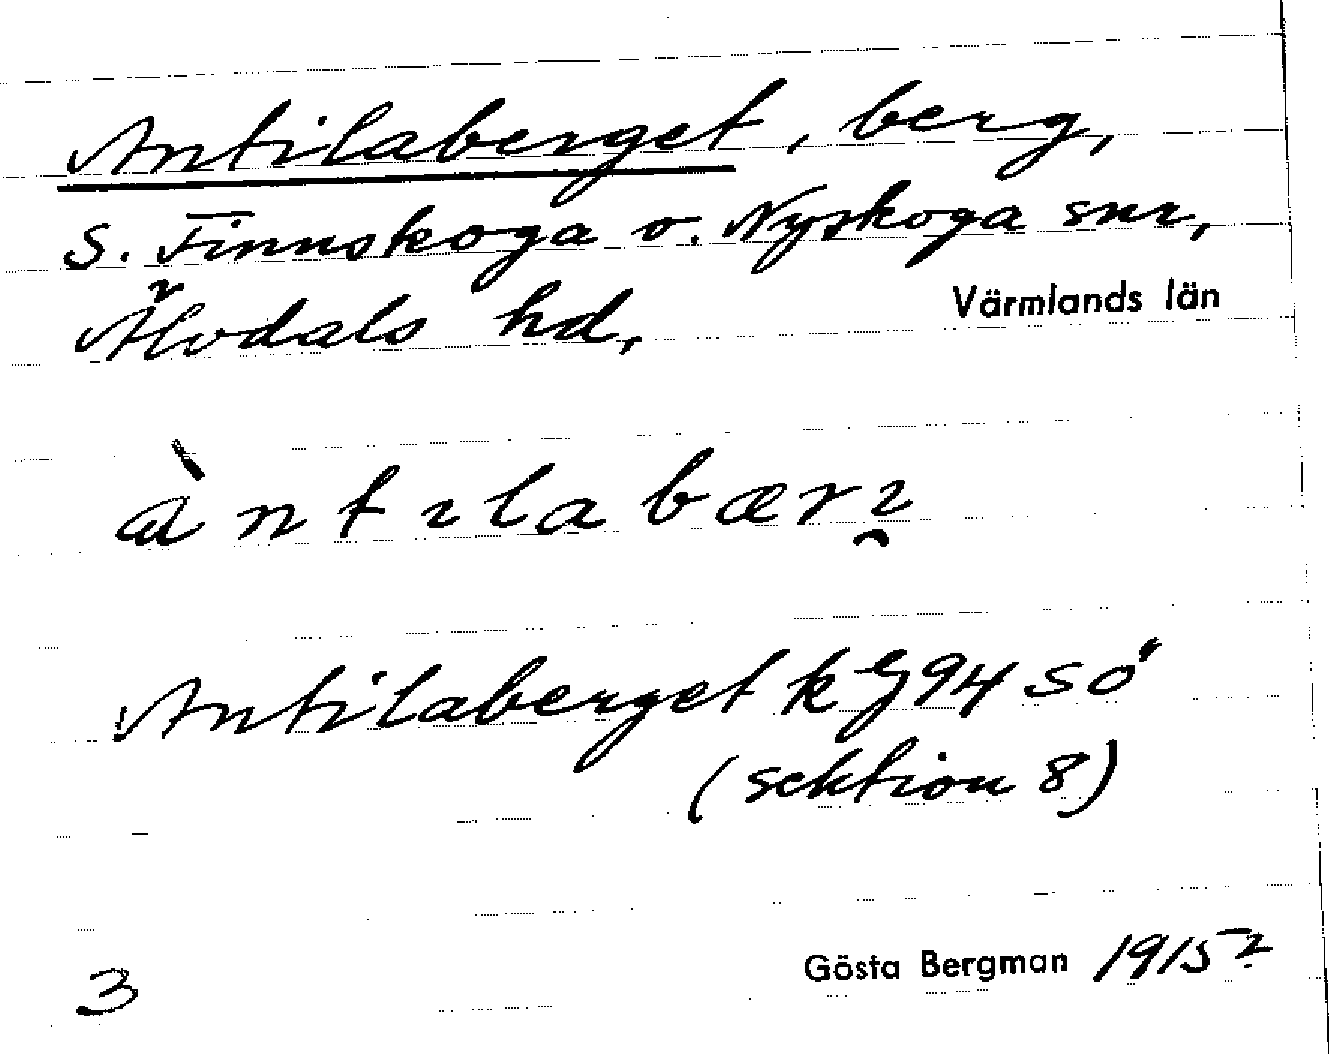 Antilaberget, berg,
S. Finnskoga o. Nyskoga snr,
Älvdals hd, Värmlands län
àntılabærı̯
Antilaberget k eg 94 SÖ
(sektion 8)
3 Gösta Bergman 1915?